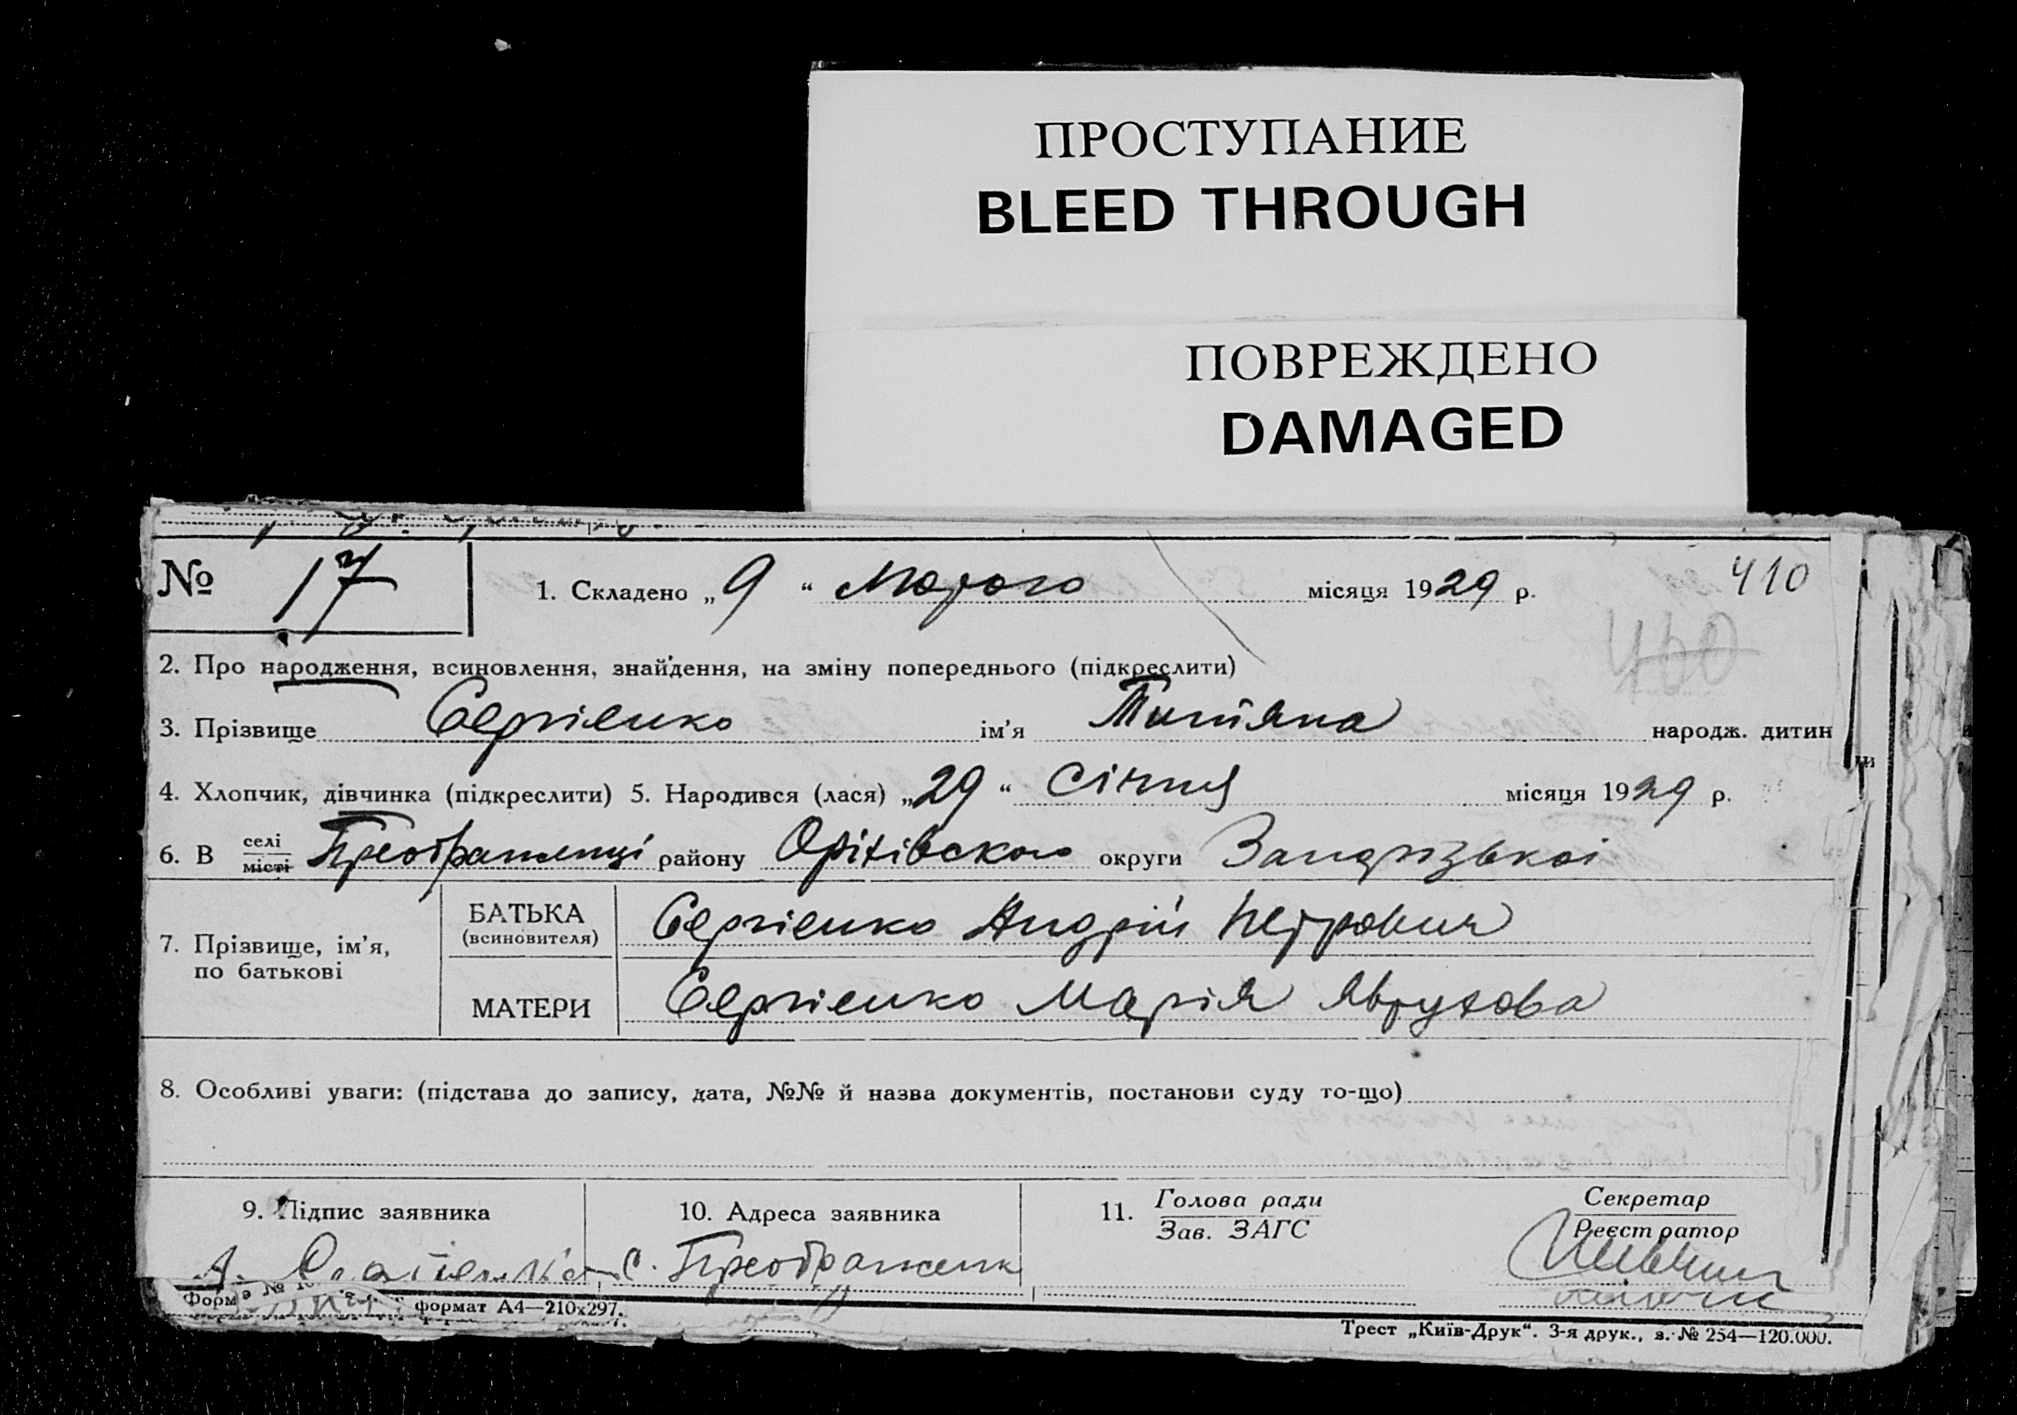 ПРОСТУПАНИЕ
BLEED THROUGH
ПОВРЕЖДЕНО
DAMAGED
№ 17
1. Складено „ 9 “ Лютого місяця 1929 р.
410
2. Про народження, всиновлення, знайдення, на зміну попереднього (підкреслити)
410
3. Прізвище Сергієнко ім’я Титяна народж. дитин
4. Хлопчик, дівчинка (підкреслити) 5. Народився (лася) „29“ Січня місяця 1929 р.
6. В селі місті Преображенці району Оріхівского округи Запорізької
7. Прізвище, ім’я, по батькові
БАТЬКА (всиновителя) Сергієнко Андрій Петрович
МАТЕРИ Сергієнко Марія Явтухова
8. Особливі уваги: (підстава до запису, дата, №№ й назва документів, постанови суду то-що)
9. Підпис заявника
10. Адреса заявника
11. Голова ради Зав. ЗАГС
Секретар Реєстратор
А.
с. Преображенк
Форма № формат А4—210х297.
Трест „Київ-Друк“. 3-я друк., з. № 254—120.000.